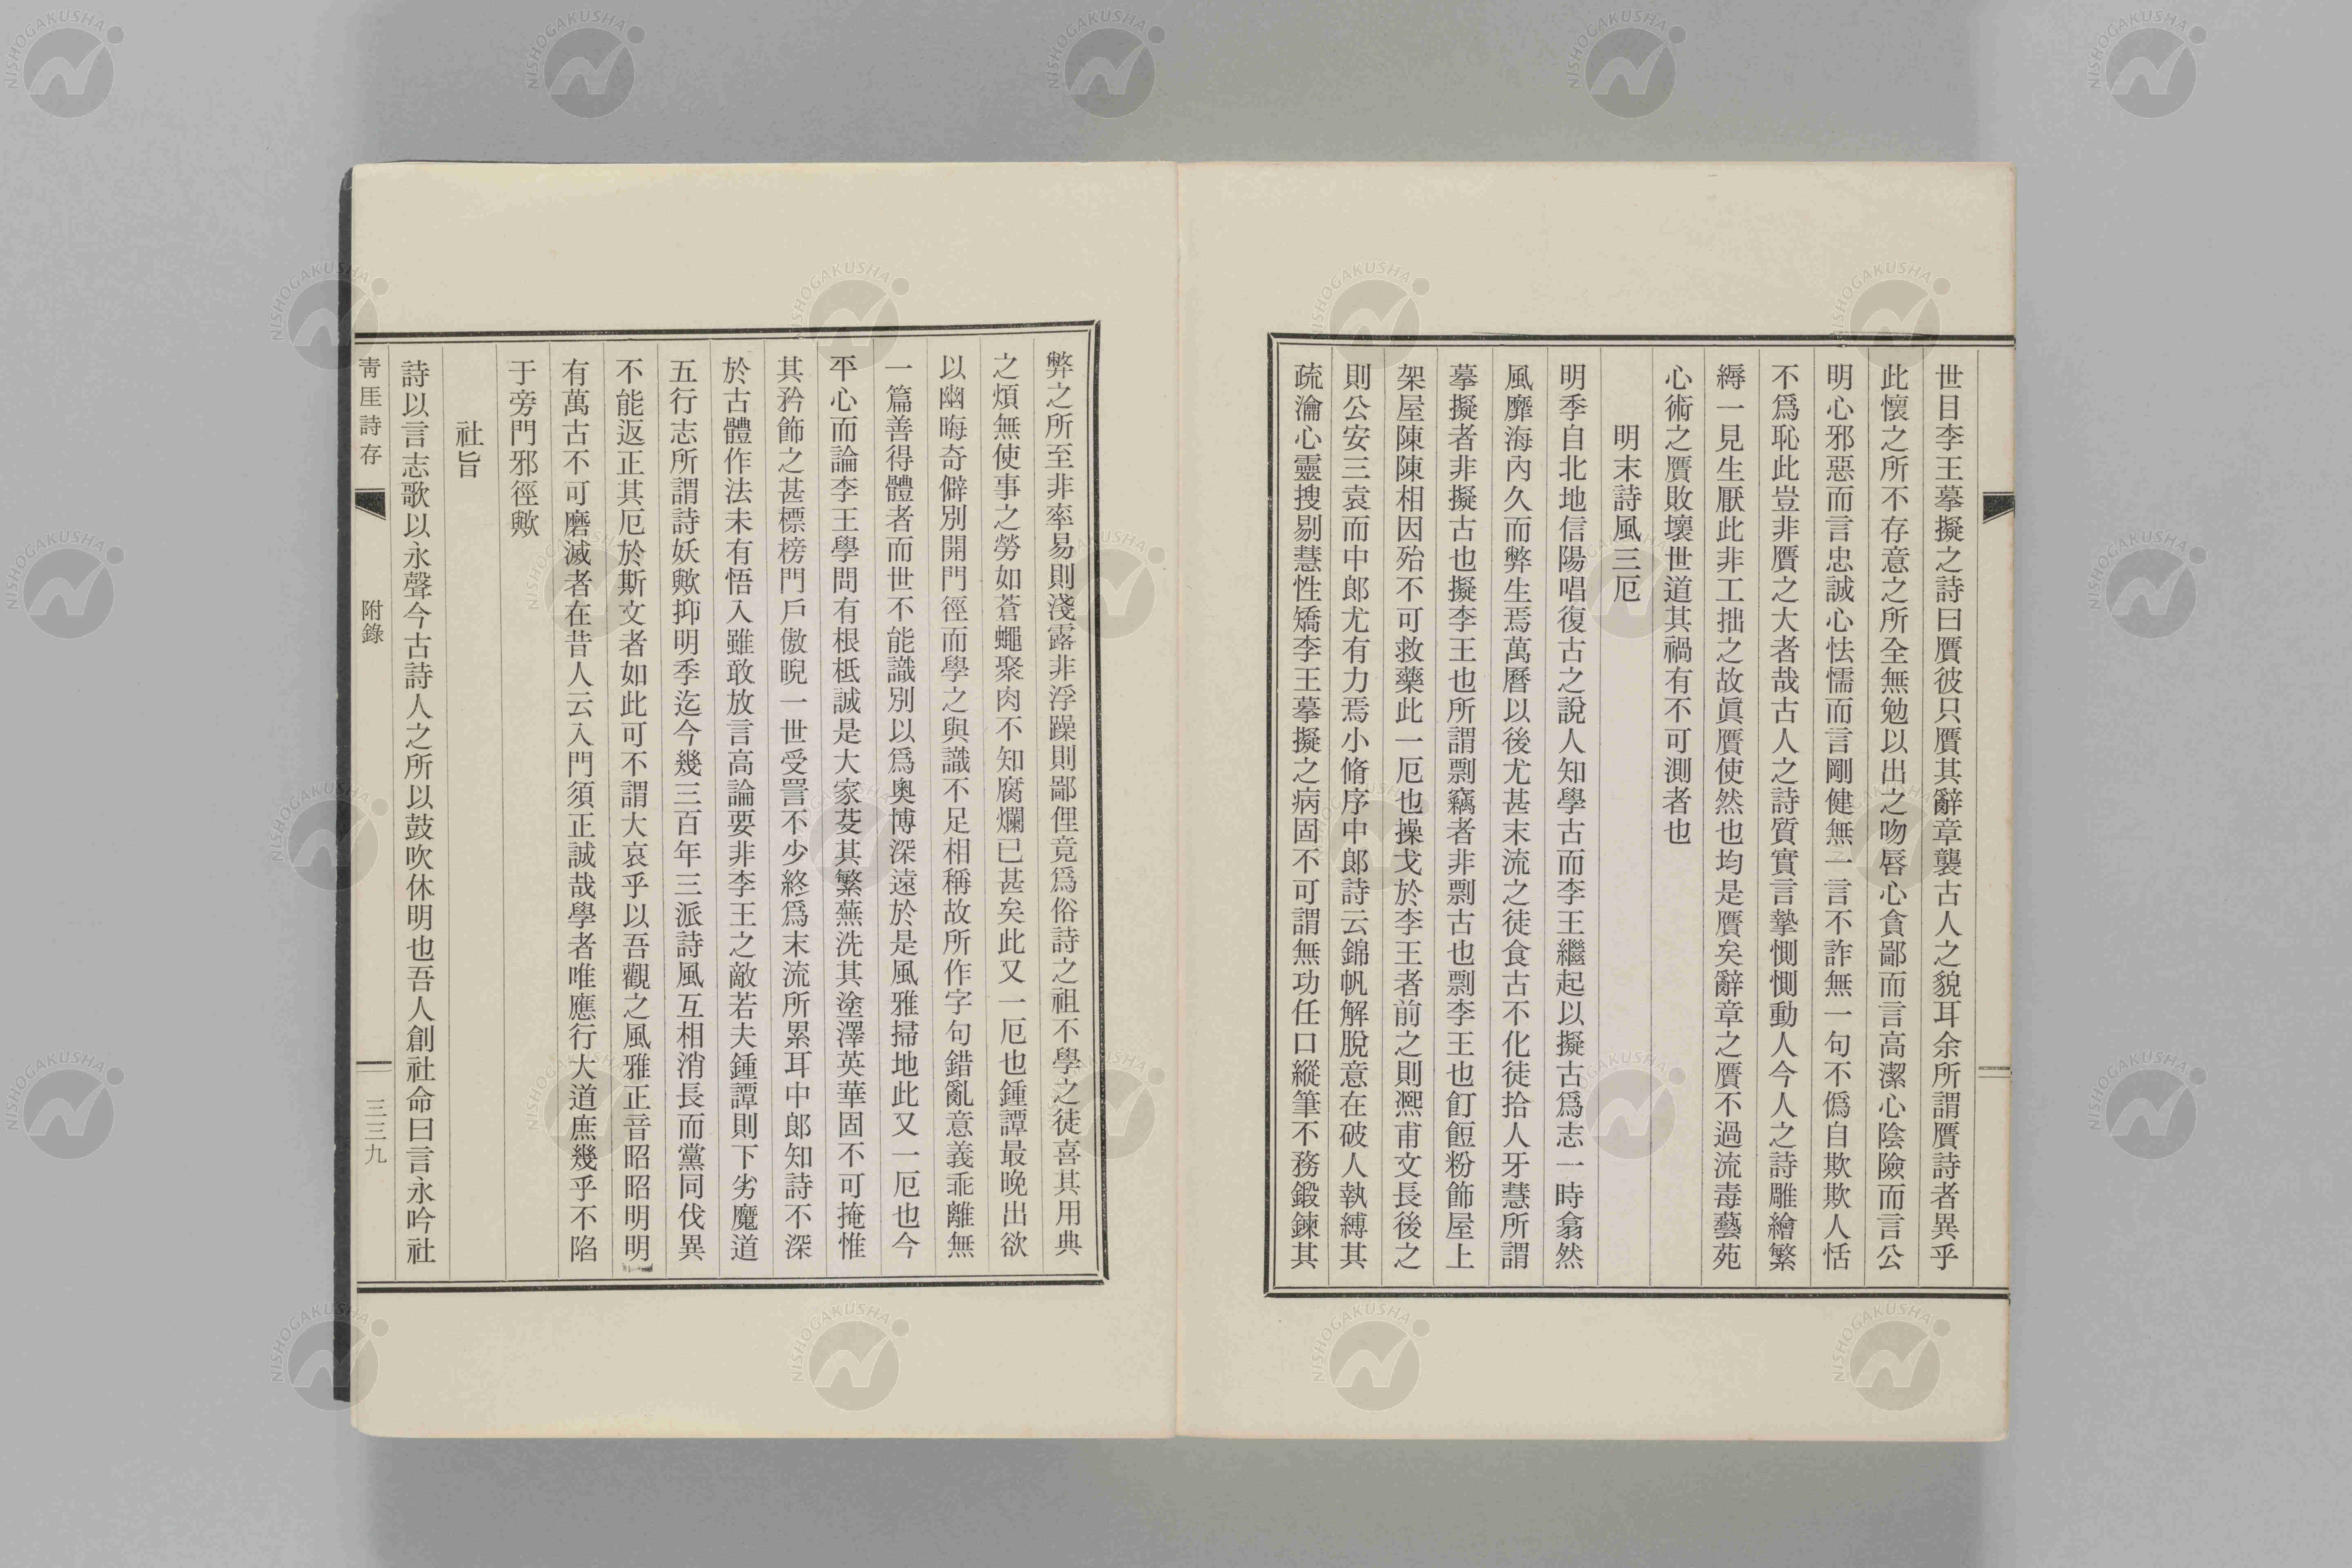 世目李王摹擬之詩曰贋彼只贋其辭章襲古人之貌耳余所謂贋詩者異乎
此懷之所不存意之所全無勉以出之吻唇心貪鄙而言高潔心陰險而言公
明心邪惡而言忠誠心怯懦而言剛健無一言不詐無一句不僞自欺欺人恬
不爲恥此豈非贋之大者哉古人之詩質實言摯惻惻動人今人之詩雕繪繁
縟一見生厭此非工拙之故眞贋使然也均是贋矣辭章之贋不過流毒藝苑
心術之贋敗壞世道其禍有不可測者也
明末詩風三厄
明季自北地信陽唱復古之說人知學古而李王繼起以擬古爲志一時翕然
風靡海內久而弊生焉萬曆以後尤甚末流之徒食古不化徒拾人牙慧所謂
摹擬者非擬古也擬李王也所謂剽竊者非剽古也剽李王也飣餖粉飾屋上
架屋陳陳相因殆不可救藥此一厄也操戈於李王者前之則熙甫文長後之
則公安三袁而中郎尤有力焉小脩序中郎詩云錦帆解脫意在破人執縛其
疏瀹心靈搜剔慧性矯李王摹擬之病固不可謂無功任口縱筆不務鍛鍊其
弊之所至非率易則淺露非浮躁則鄙俚竟爲俗詩之祖不學之徒喜其用典
之煩無使事之勞如蒼蠅聚肉不知腐爛已甚矣此又一厄也鍾譚最晚出欲
以幽晦奇僻別開門徑而學之與識不足相稱故所作字句錯亂意義乖離無
一篇善得體者而世不能識別以爲奧博深遠於是風雅掃地此又一厄也今
平心而論李王學問有根柢誠是大家芟其繁蕪洗其塗澤英華固不可掩惟
其矜飾之甚標榜門戶傲睨一世受詈不少終爲末流所累耳中郎知詩不深
於古體作法未有悟入雖敢放言高論要非李王之敵若夫鍾譚則下劣魔道
五行志所謂詩妖歟抑明季迄今幾三百年三派詩風互相消長而黨同伐異
不能返正其厄於斯文者如此可不謂大哀乎以吾觀之風雅正音昭昭明明
有萬古不可磨滅者在昔人云入門須正誠哉學者唯應行大道庶幾乎不陷
于旁門邪徑歟
社旨
詩以言志歌以永聲今古詩人之所以鼓吹休明也吾人創社命曰言永吟社
靑厓詩存
附錄
三三九